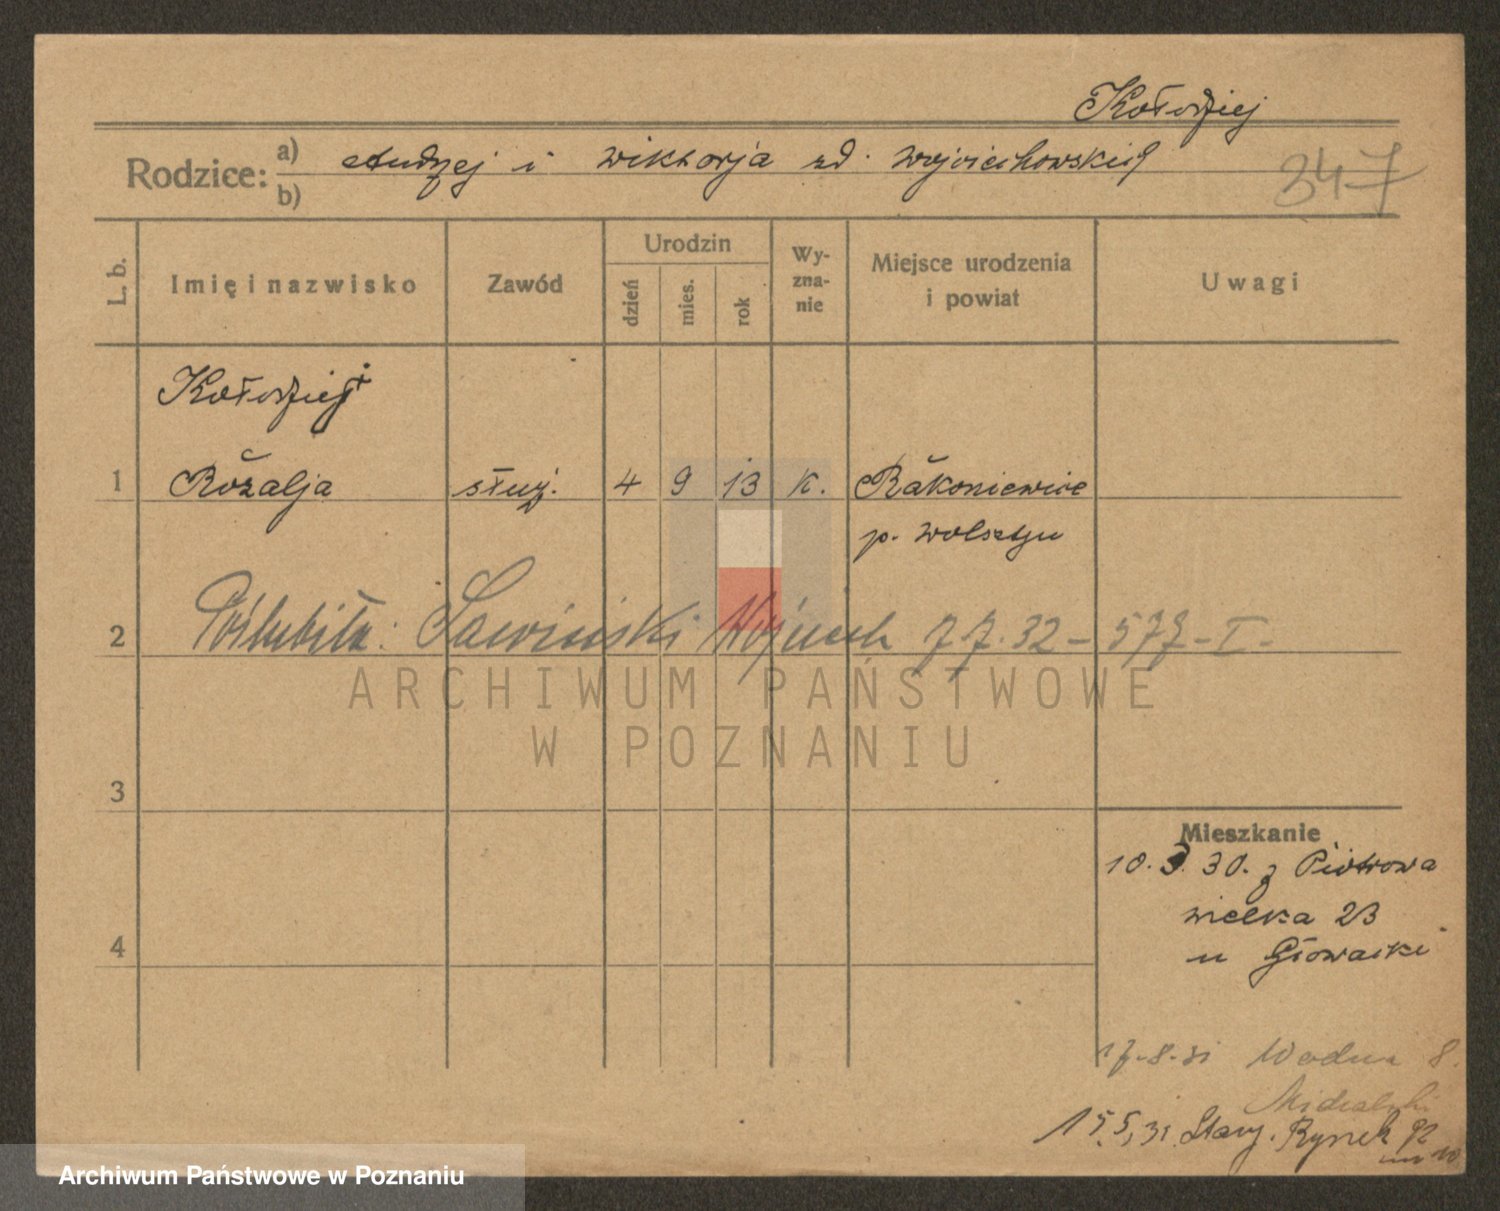 Kołodziej
Rodzice: a) Andrzej i Wiktorja zd. Wojciechowskich
b)
347
L. b. Imię i nazwisko Zawód Urodzin dzień mies. rok Wyznanie Miejsce urodzenia i powiat Uwagi
Kołodziej
1 Rozalja służ. 4 9 13 k. Rakoniewice
p. Wolsztyn
2 Poślubiła: Sawiński Wojciech 7.7.32 - 577 - I -
ARCHIWUM PAŃSTWOWE
W POZNANIU
3
Mieszkanie
10. 30. z Piotrowa
wielka 23
4 u Głowacki
17.8.31 Wodna 8.
Michalski
15.5.31 Stary Rynek 92
Archiwum Państwowe w Poznaniu